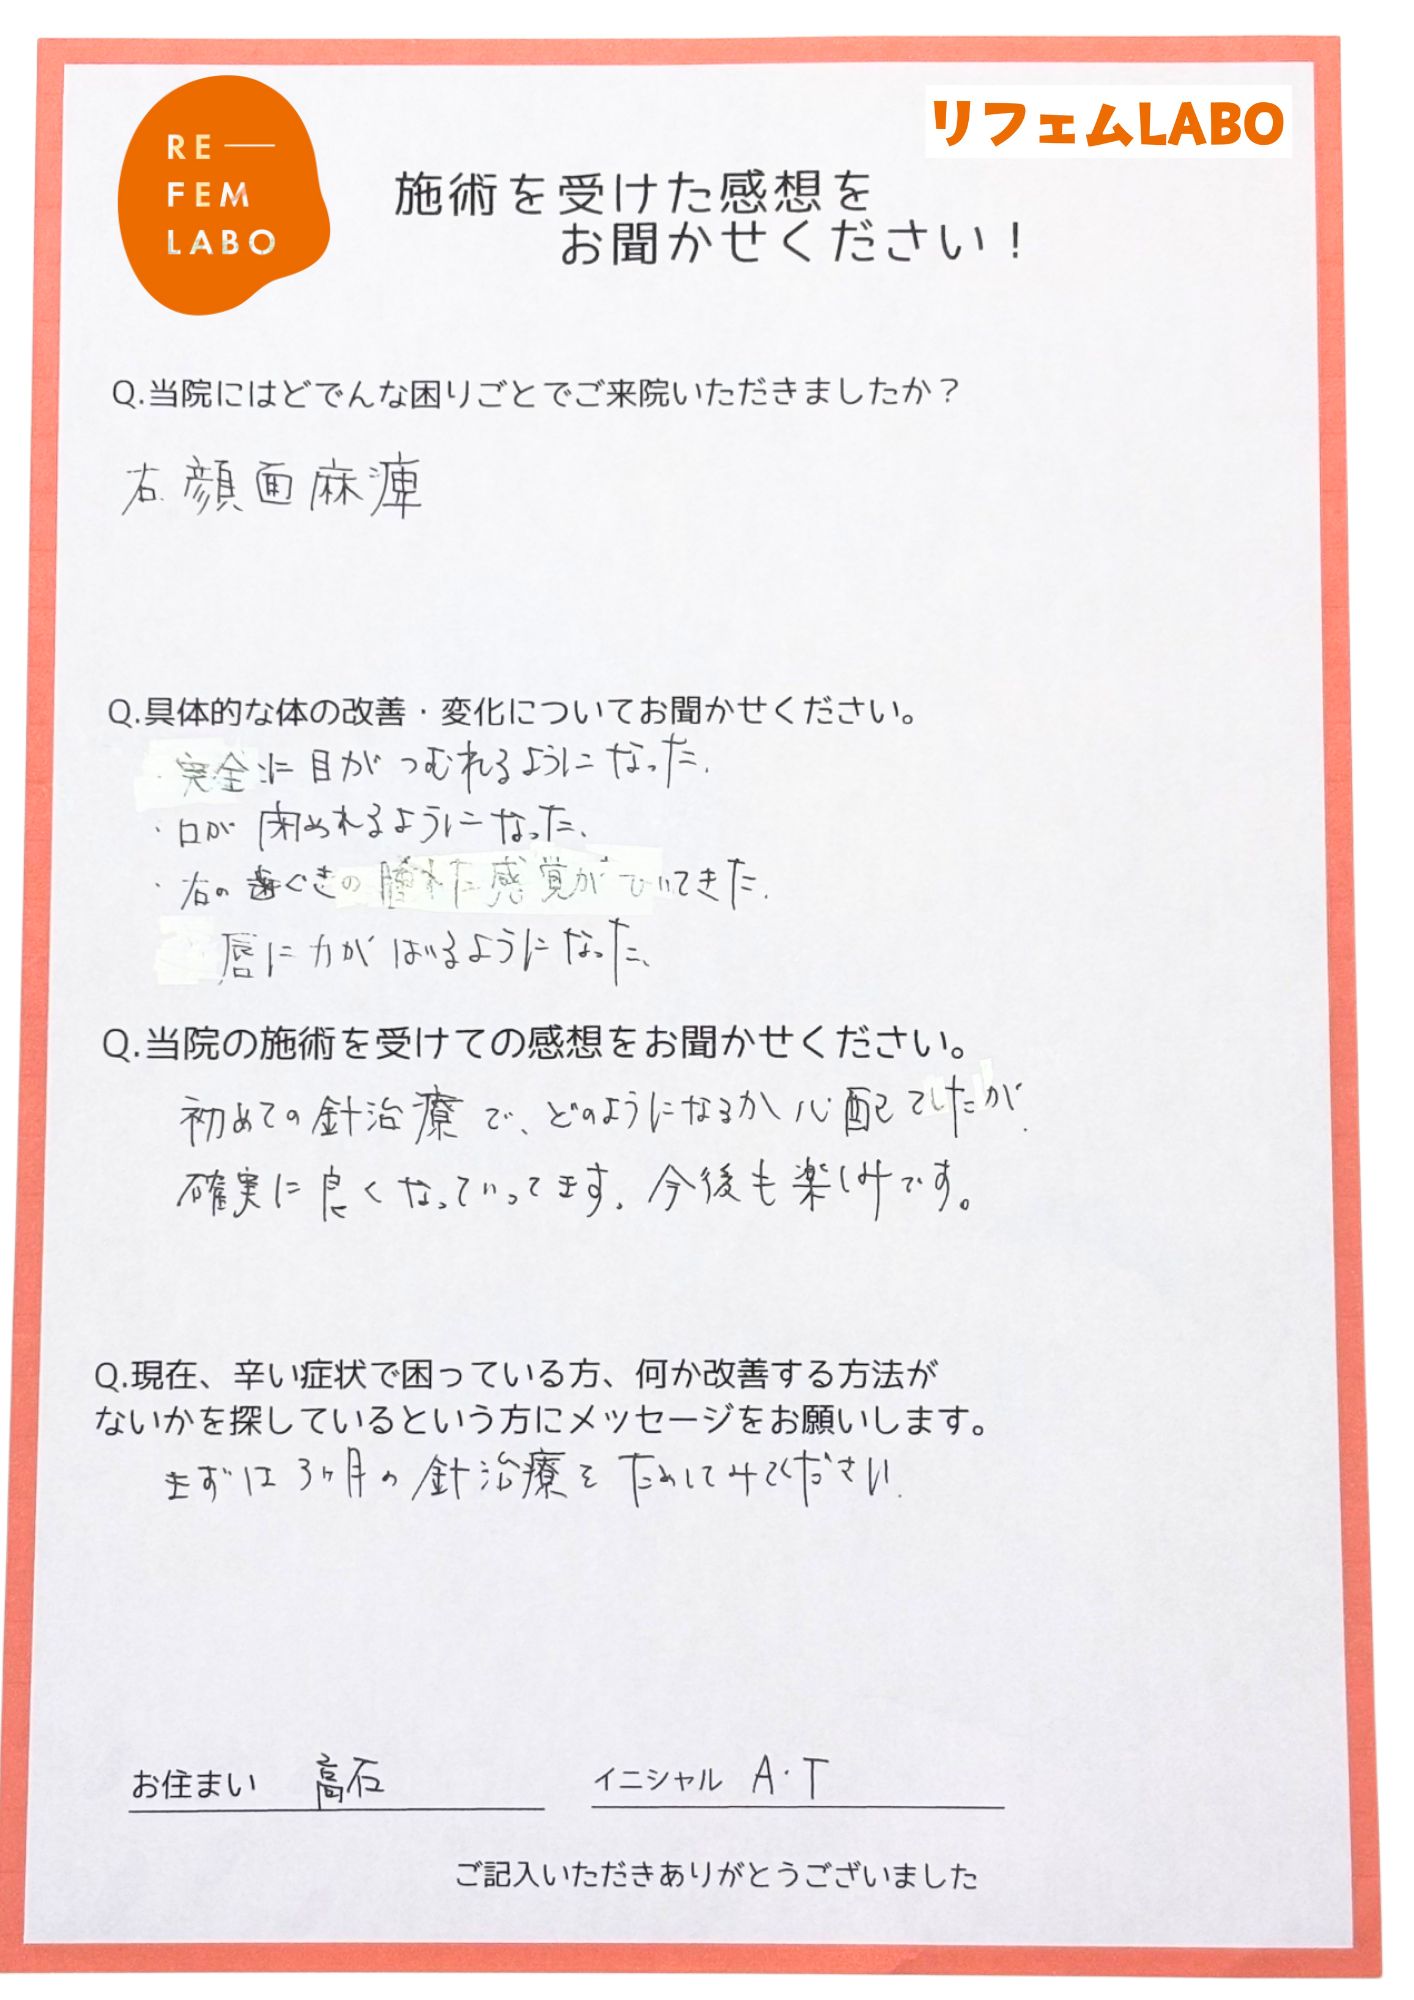 RE
FEM
LABO
リフェムLABO
施術を受けた感想を
お聞かせください！
Q.当院にはどでんな困りごとでご来院いただきましたか？
右顔面麻痺
Q.具体的な体の改善・変化についてお聞かせください。
・完全に目がつむれるようになった.
・口が閉めれるようになった.
・右の歯ぐきの腫れた感覚がひいてきた.
唇に力がはいるようになった.
Q.当院の施術を受けての感想をお聞かせください。
初めての針治療で、どのようになるか心配でしたが.
確実に良くなっていってます. 今後も楽しみです。
Q.現在、辛い症状で困っている方、何か改善する方法が
ないかを探しているという方にメッセージをお願いします。
まずは3ヶ月の針治療をためしてみてください.
お住まい 高石 イニシャル A・T
ご記入いただきありがとうございました